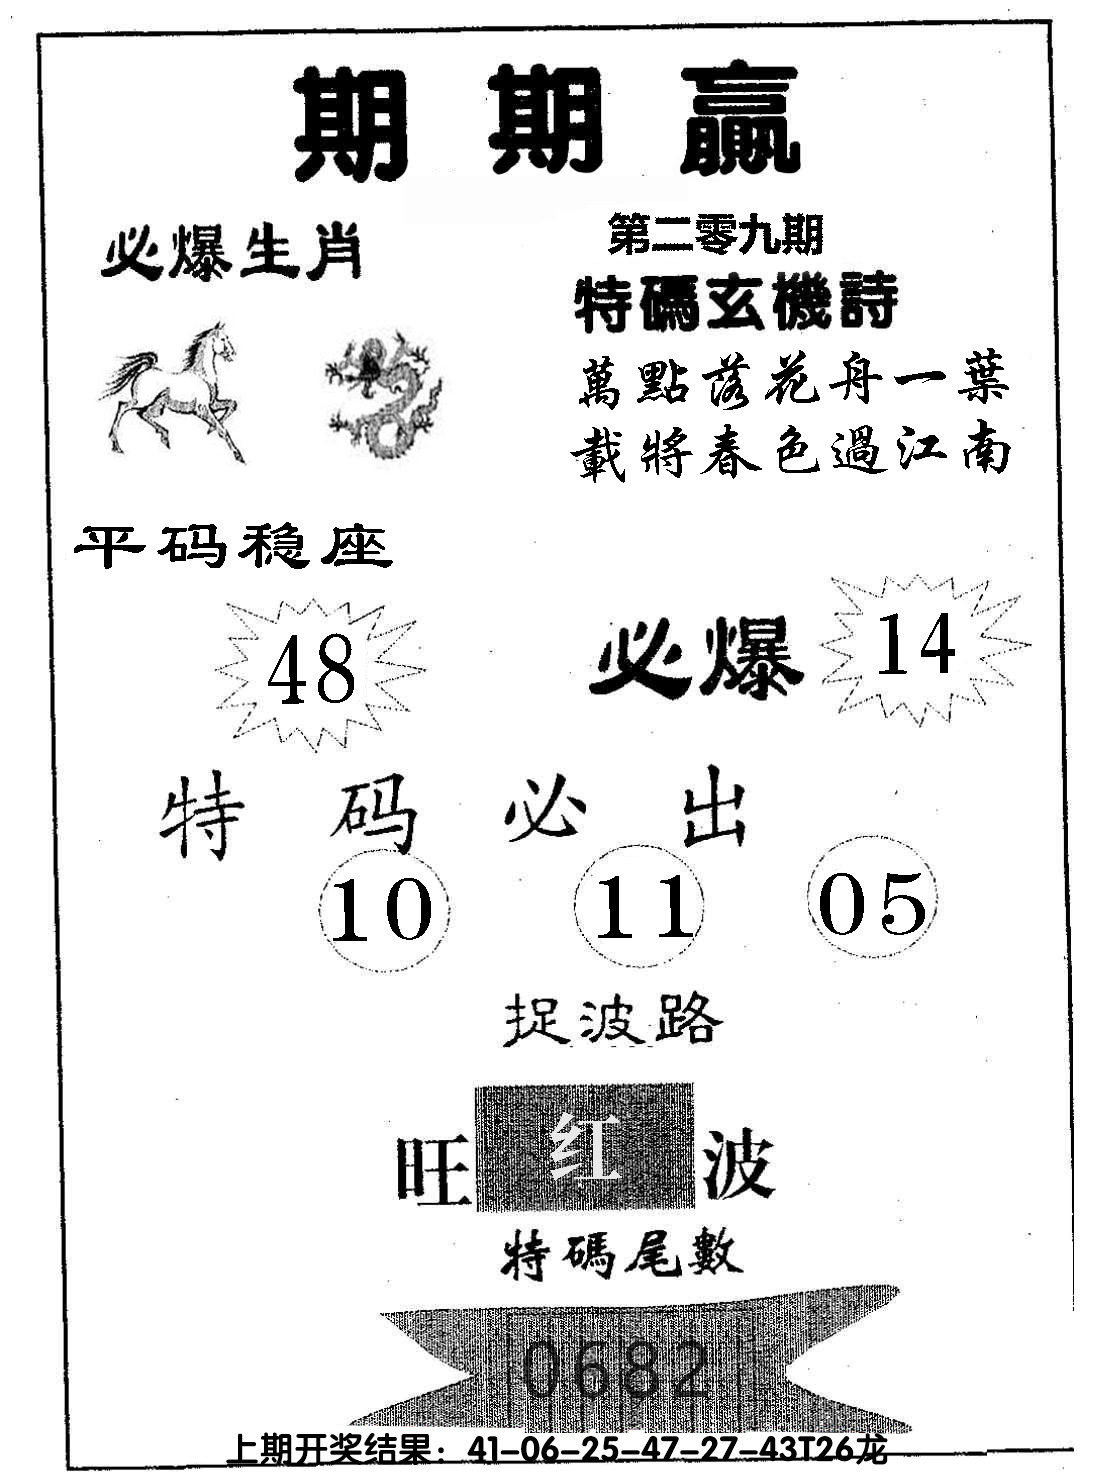 期期赢
必爆生肖
第二零九期
特碼玄機詩
萬點落花舟一葉
載將春色過江南
平码稳座
48
必爆
14
特码必出
10 11 05
捉波路
旺红波
特碼尾數
0682
上期开奖结果：41-06-25-47-27-43T26龙